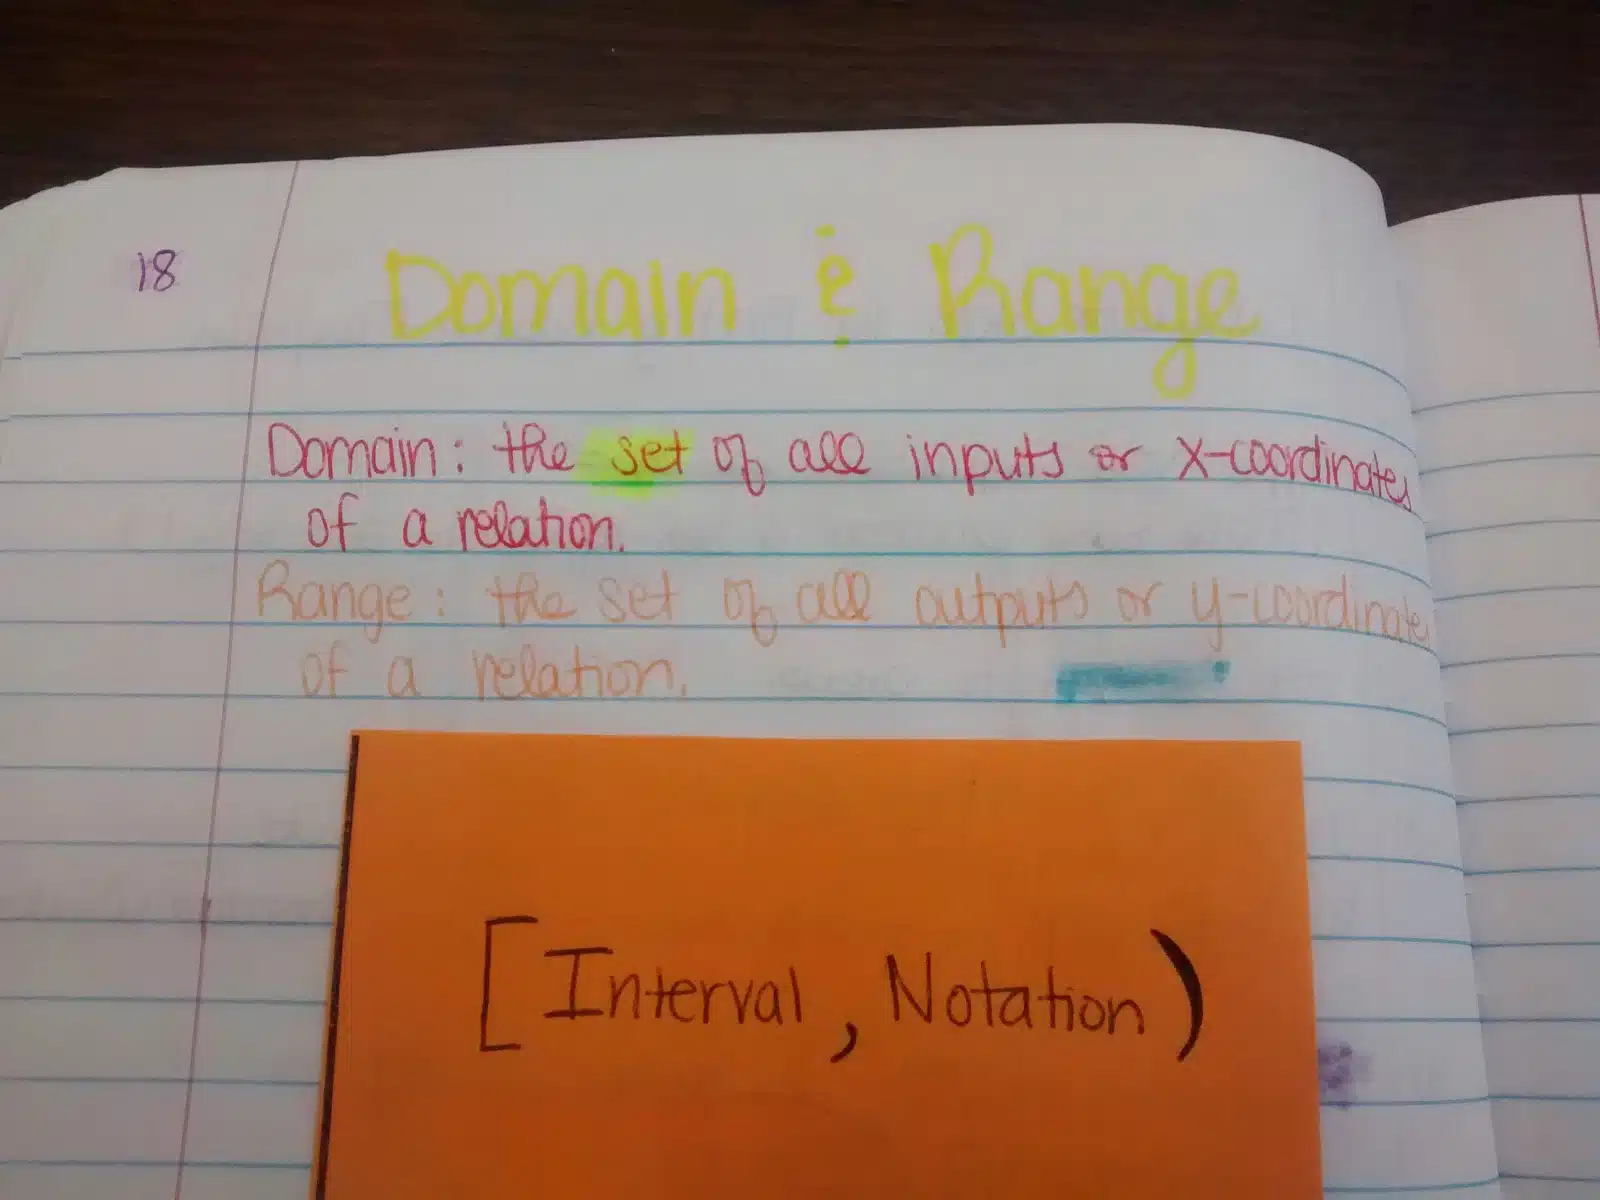 18
Domain & Range
Domain: the set of all inputs or x-coordinates
of a relation.
Range: the set of all outputs or y-coordinates
of a relation.
[Interval, Notation)